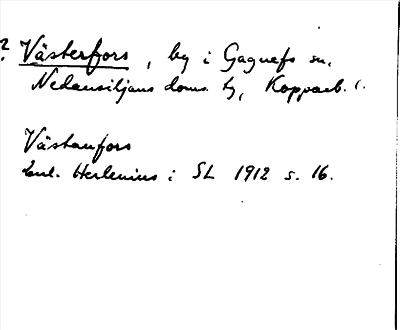 ? Västerfors, by i Gagnefs sn,
Nedansiljans doms. tg, Kopparb. l.
Västanfors
Enl. Herlenius i SL 1912 s. 16.